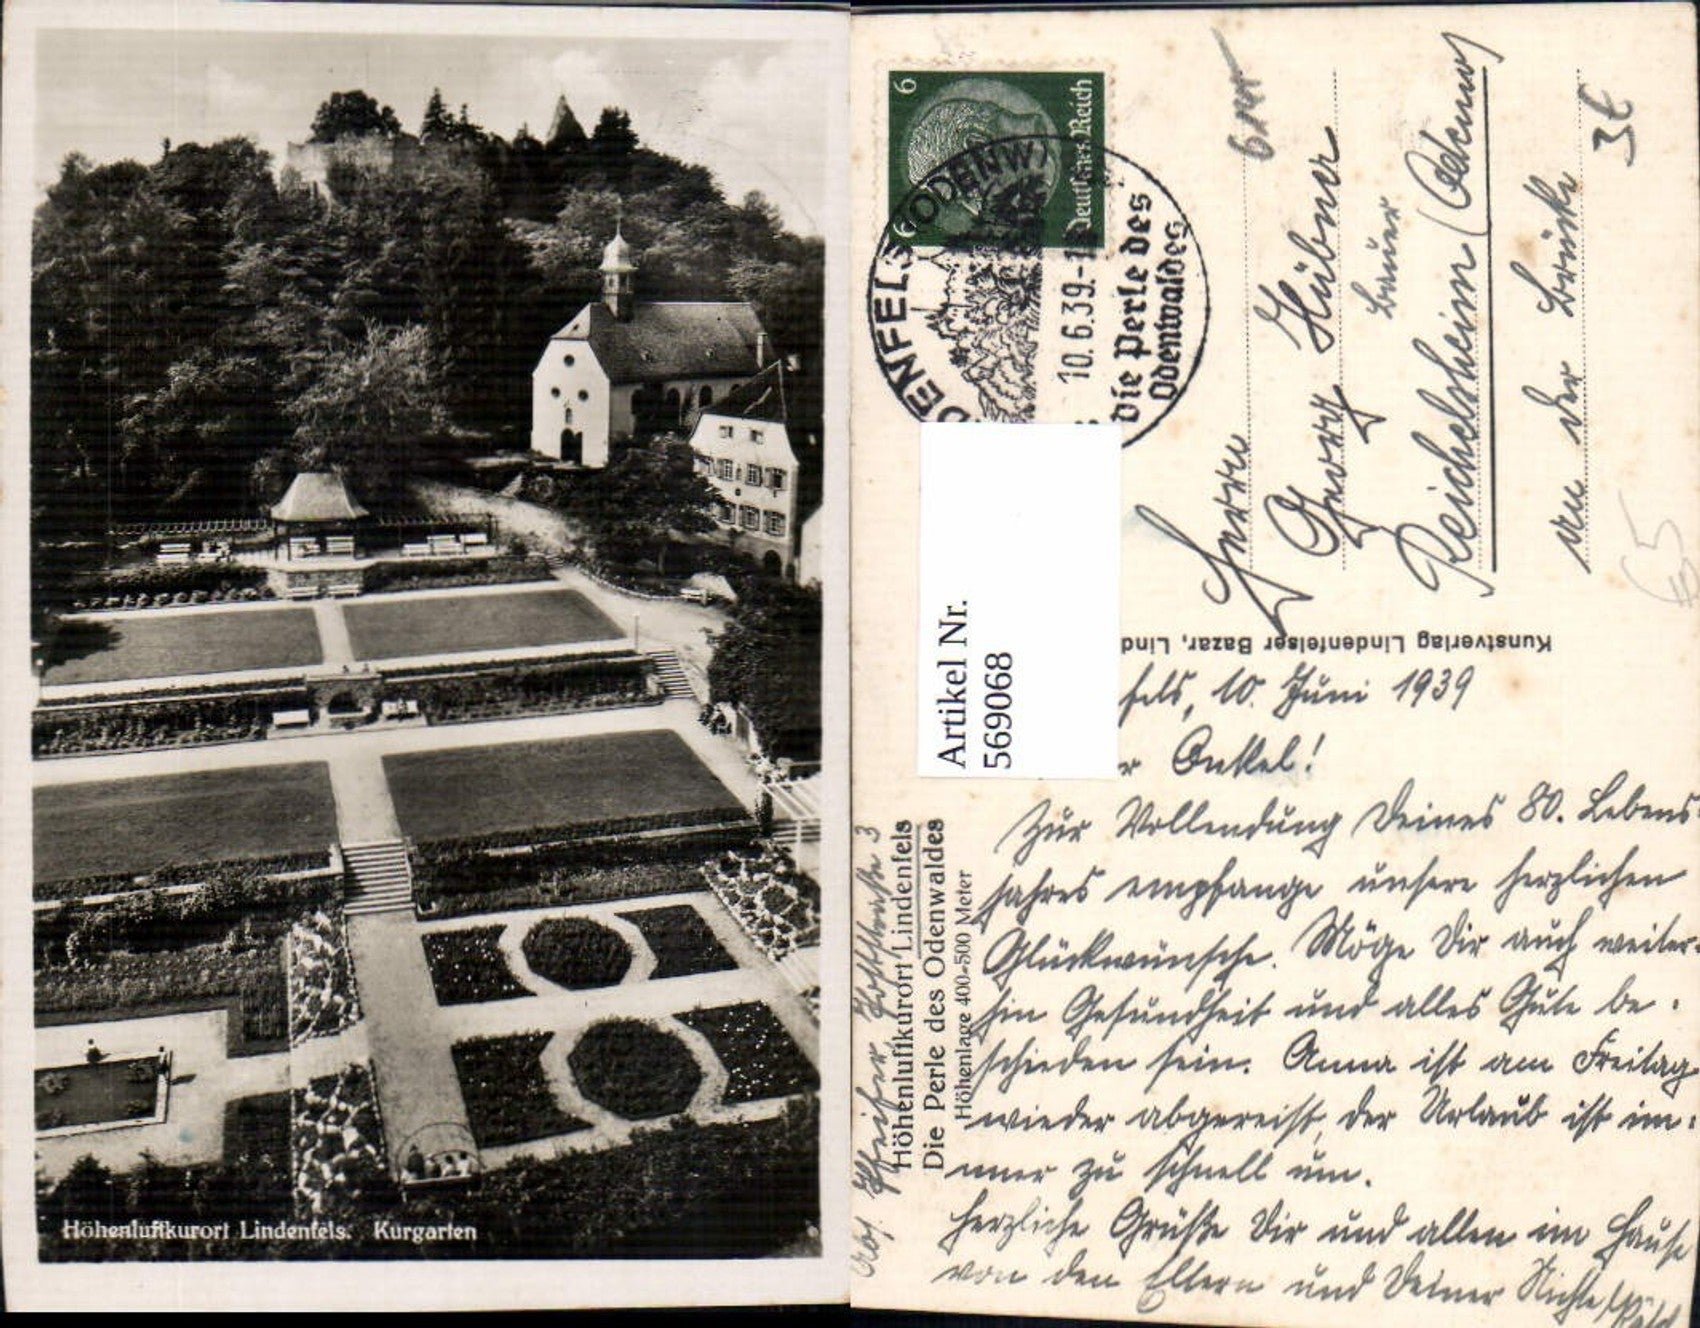 Höhenluftkurort Lindenfels. Kurgarten
6
Deutsches Reich
LINDENFELS (ODENW)
10.6.39.-1
Die Perle des
Odenwaldes
Artikel Nr.
5569068
Herrn
Georg Hübner
Bauer
Reichelsheim (Odenw)
an der Brücke
3€
65
Kunstverlag Lindenfelser Bazar, Lind
Höhenluftkurort Lindenfels
Die Perle des Odenwaldes
Höhenlage 400-500 Meter
fels, 10. Juni 1939
r Onkel!
Zur Vollendung Deines 80. Lebens-
jahres empfange unsere herzlichen
Glückwünsche. Möge Dir auch weiter-
hin Gesundheit und alles Gute be-
schieden sein. Anna ist am Freitag
wieder abgereist, der Urlaub ist im-
mer zu schnell um.
Herzliche Grüße Dir und allen im Hause
von den Eltern und Deiner Nichte